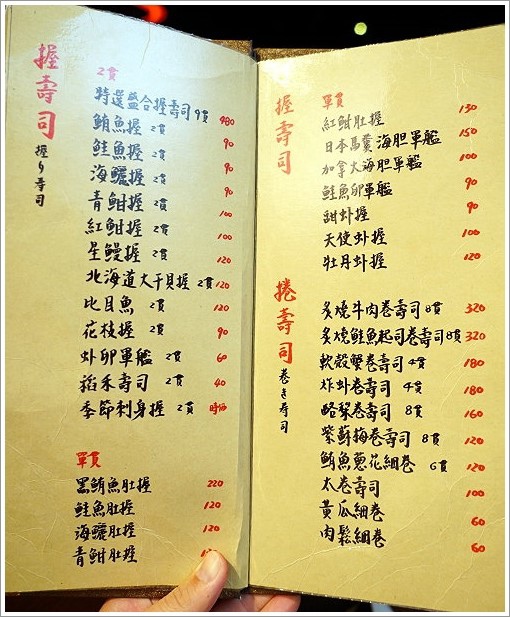 握壽司
握り寿司
2貫
特選盛合握壽司 9貫 980
鮪魚握 2貫 90
鮭魚握 2貫 90
海鱺握 2貫 90
青魽握 2貫 100
紅魽握 2貫 100
星鰻握 2貫 120
北海道大干貝握 2貫 120
比目魚 2貫 120
花枝握 2貫 90
虾卵軍艦 2貫 60
稻禾壽司 2貫 40
季節刺身握 2貫 時価
單貫
黑鮪魚肚握 220
鮭魚肚握 120
海鱺肚握 120
青魽肚握
握壽司
單貫
紅魽肚握 130
日本馬糞海胆軍艦 150
加拿大海胆軍艦 100
鮭魚卵軍艦 90
甜虾握 90
天使虾握 100
牡丹虾握 120
捲壽司
巻き寿司
炙燒牛肉卷壽司 8貫 320
炙燒鮭魚起司卷壽司 8貫 320
軟殼蟹卷壽司 4貫 180
炸虾卷壽司 4貫 180
酪梨卷壽司 8貫 160
紫蘇梅卷壽司 8貫 120
鮪魚蔥花細卷 6貫 120
太卷壽司 100
黃瓜細卷 60
肉鬆細卷 60